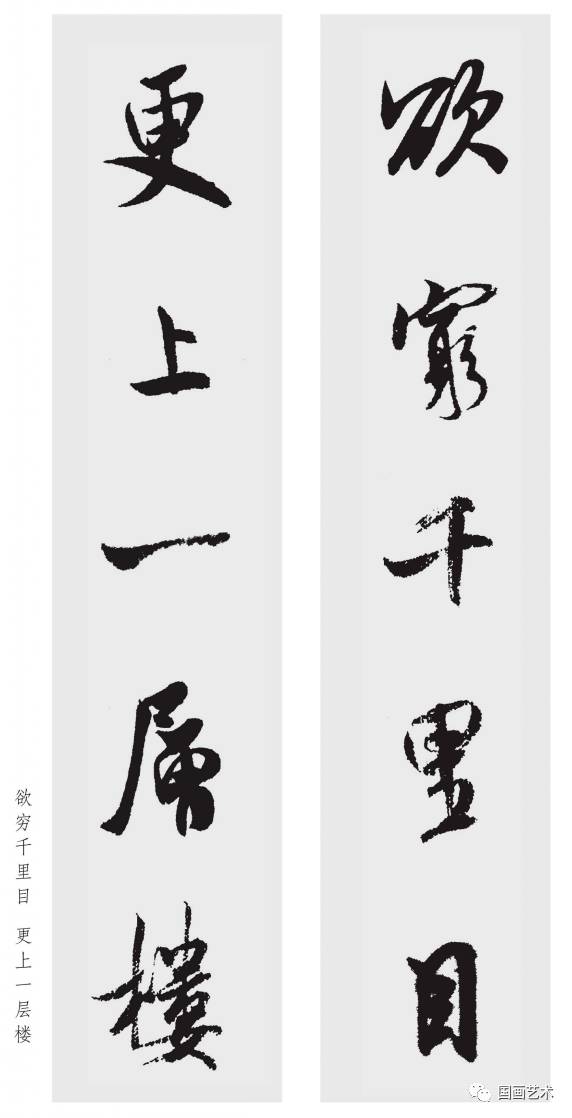 欲窮千里目
更上一層樓
欲穷千里目 更上一层楼
国画艺术